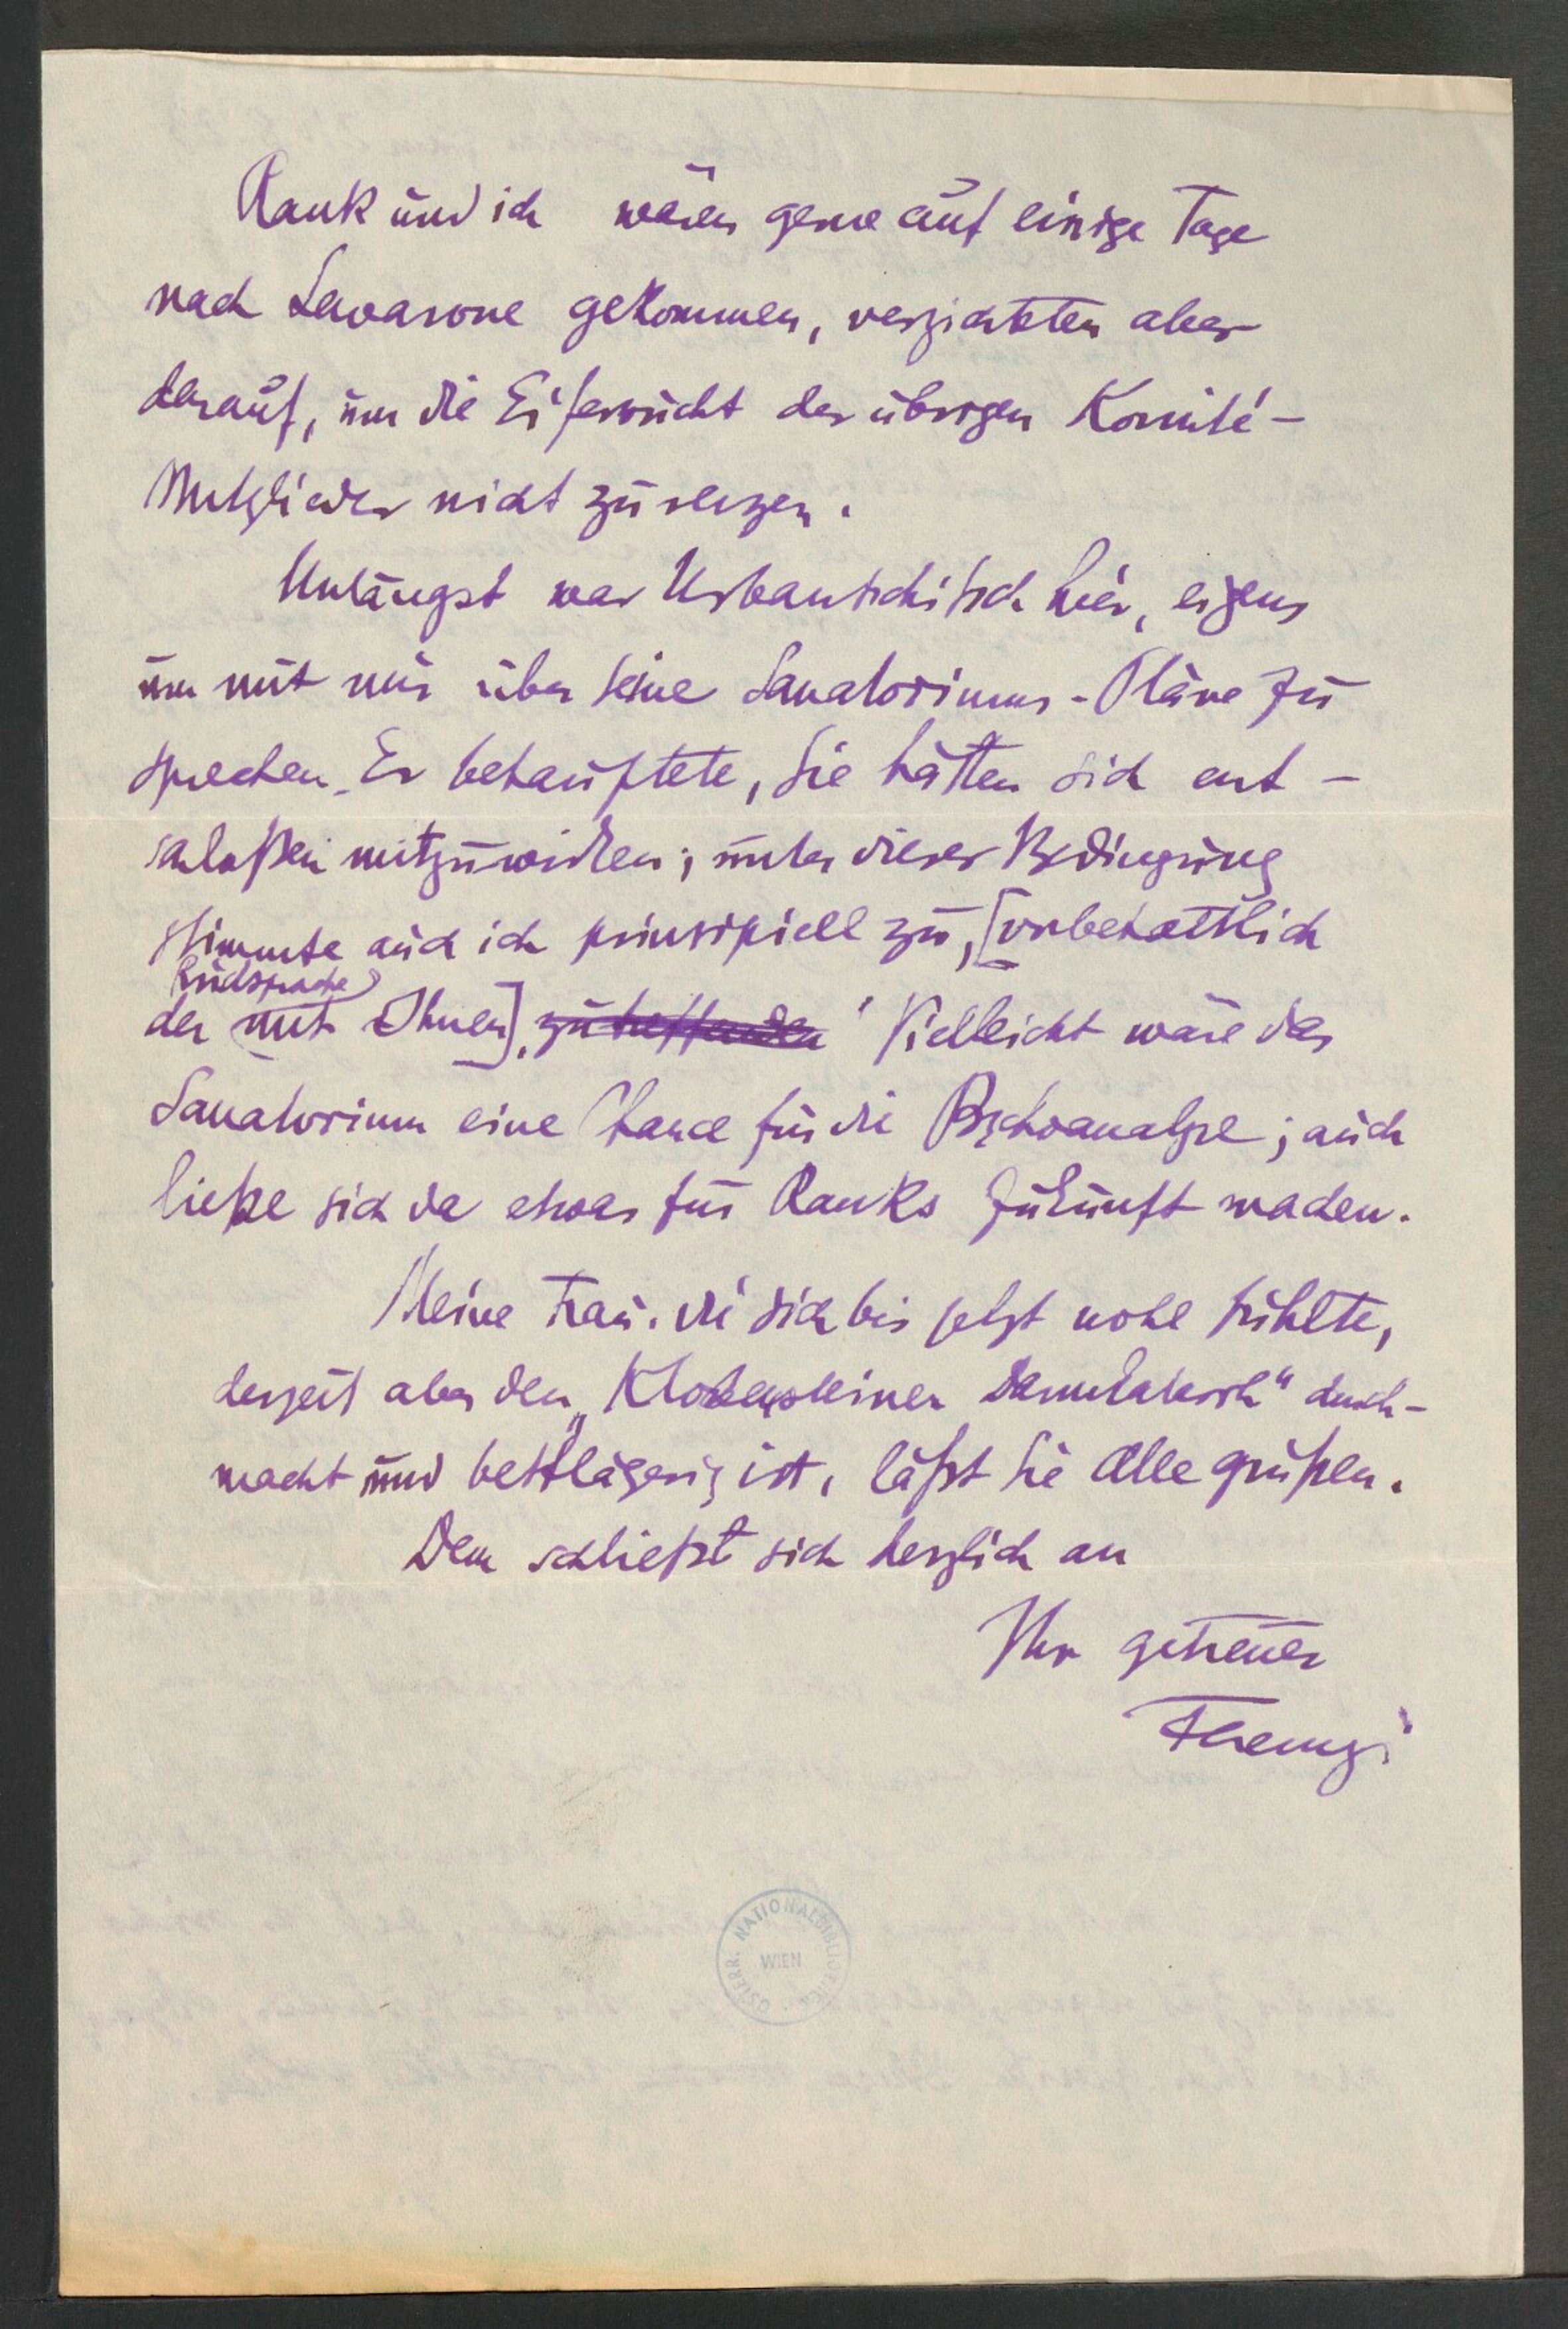 Rank und ich wären gerne auf einige Tage
nach Lavarone gekommen, verzichteten aber
darauf, um die Eifersucht der übrigen Komité-
Mitglieder nicht zu reizen.
Unlängst war Urbantschitsch hier, eigens
um mit mir über seine Sanatoriums-Pläne zu
sprechen. Er behauptete, Sie hätten sich ent-
schloßen mitzuwirken; unter dieser Bedingung
stimmte auch ich prinzipiell zu, [vorbehaltlich
Rücksprache
der mit Ihnen], zu treffenden Vielleicht wäre das
Sanatorium eine Chance für die Psychoanalyse; auch
ließe sich da etwas für Ranks Zukunft machen.
Meine Frau, die sich bis jetzt wohl fühlte,
derzeit aber den „Klobensteiner Darmkatarrh" durch-
macht und bettlägerig ist, läßt Sie Alle grüßen.
Dem schließt sich herzlich an
Ihr getreuer
Ferenczi
ÖSTERR. NATIONALBIBLIOTHEK
WIEN